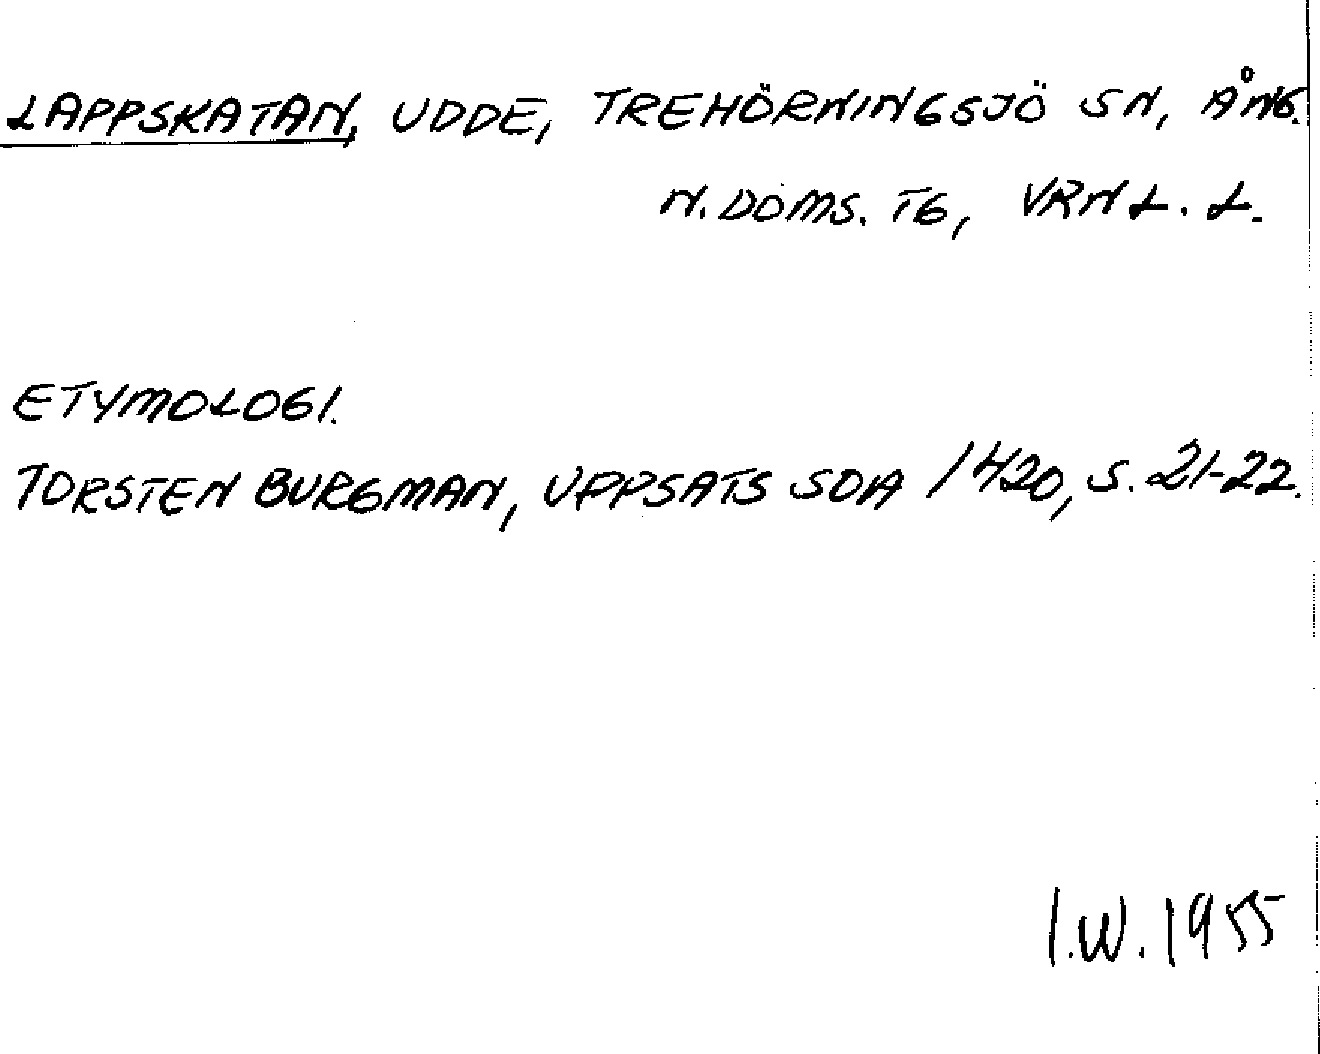 LAPPSKATAN, UDDE, TREHÖRNINGSJÖ SN, ÅNG.
N. DOMS. TG, VRNL. L.
ETYMOLOGI.
TORSTEN BURGMAN, UPPSATS SOA 1420, S. 21-22.
I.W. 1955